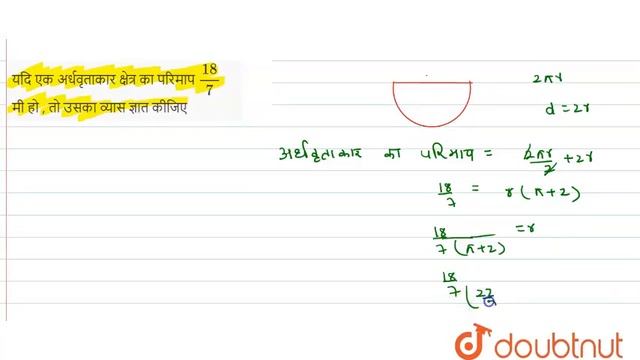 यदि एक अर्धवृताकार क्षेत्र का परिमाप 18/7
मी हो , तो उसका व्यास ज्ञात कीजिए
2πr
d = 2r
अर्धवृताकार का परिमाप = 2πr/2 + 2r
18/7 = r (π+2)
18/7(π+2) = r
18/7(22
doubtnut